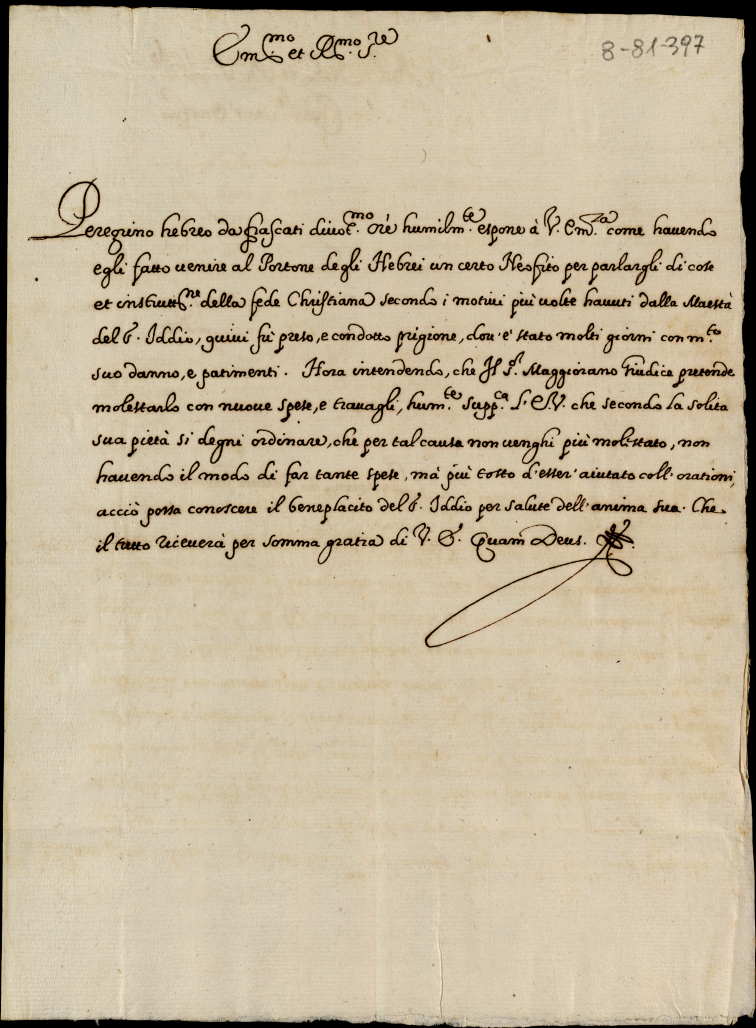 Em.mo et R.mo S.re
8-81-397
Peregrino hebreo da frascati diuot.mo ore humilm.te espone à V. Em.za come hauendo
egli fatto uenire al Portone degli Hebrei un certo Neofito per parlargli di cose
et instrutt.ne della fede Christiana secondo i motiui più uolte hauuti dalla Maestà
del S. Iddio, quiui fù preso, e condotto prigione, dou'è stato molti giorni con m.to
suo danno, e patimenti. Hora intendendo, che Il S.r Maggiorano Giudice pretende
molestarlo con nuoue spese, e trauagli, hum.te supp.ca l'E.V. che secondo la solita
sua pietà si degni ordinare, che per tal causa non uenghi più molestato, non
hauendo il modo di far tante spese, mà più tosto d'esser' aiutato coll'orationi,
acciò possa conoscere il beneplacito del S. Iddio per salute dell'anima sua. Che
il tutto riceuerà per somma gratia di V. E. Quam Deus.